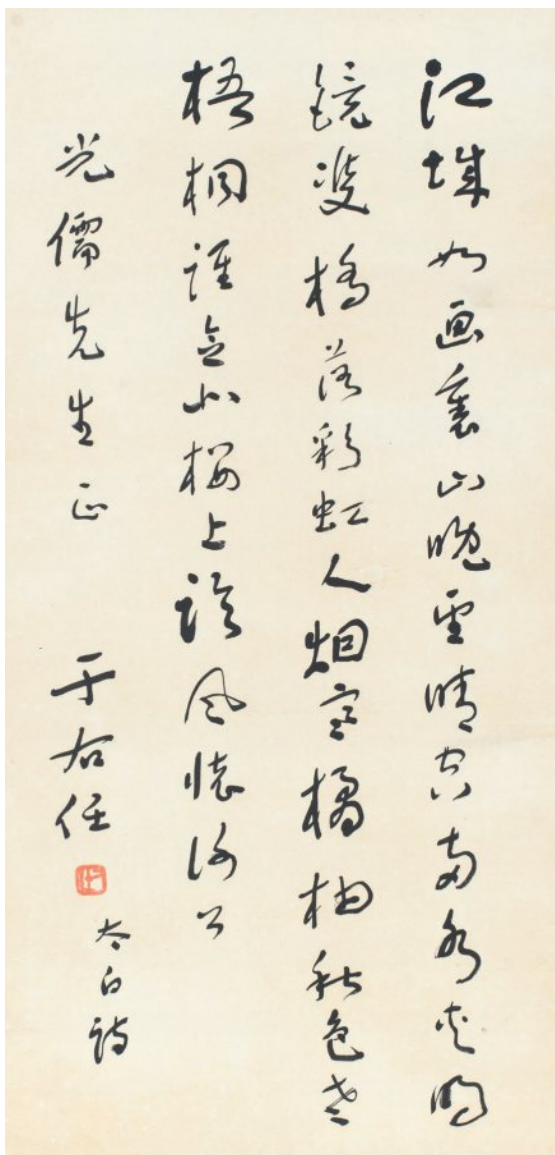 江城如画裏山晚望晴空兩水夾明
鏡雙橋落彩虹人烟寒橘柚秋色老
梧桐誰念北樓上臨風懷謝公
光儒先生正
于右任
太白詩